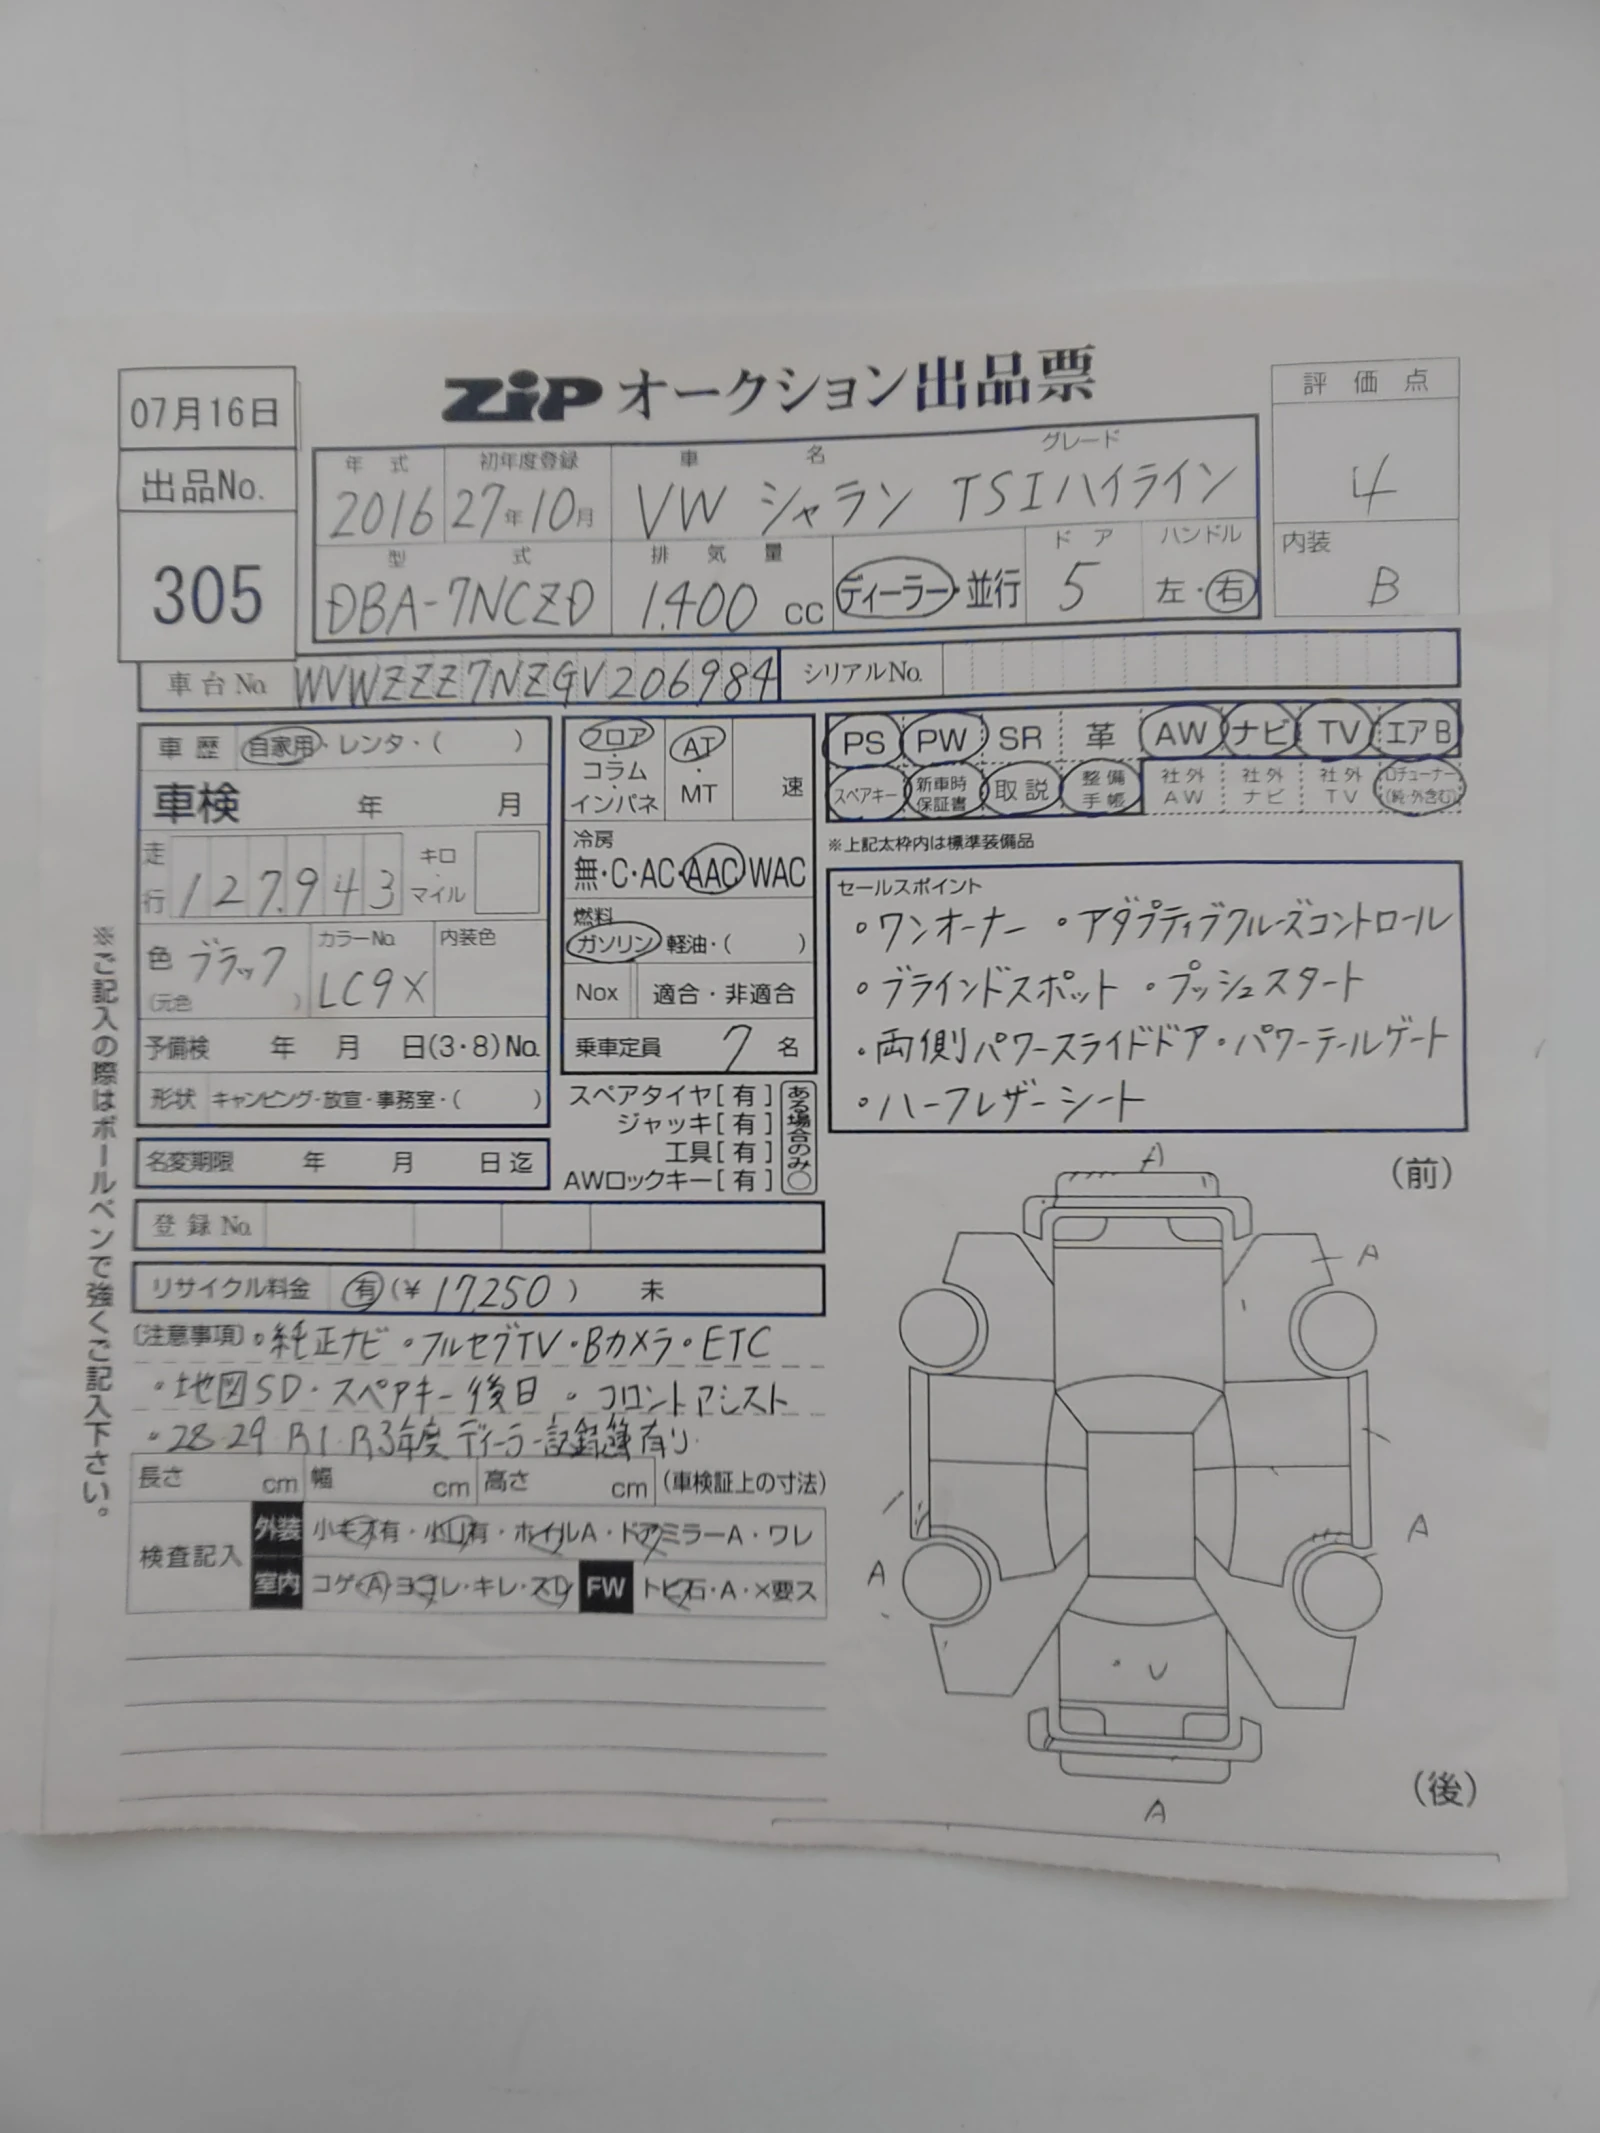 07月16日
出品No.
305
ZiP オークション出品票
評価点
4
内装
B
年式 初年度登録 車名 グレード
2016 27年10月 VW シャラン TSIハイライン
型式 排気量 ドア ハンドル
DBA-7NCZD 1,400 cc ディーラー・並行 5 左・右
車台No. WVWZZZ7NZGV206984 シリアルNo.
車歴 自家用・レンタ・( )
車検 年 月
走行 127,943 キロ・マイル
色 ブラック (元色 ) カラーNo. LC9X 内装色
予備検 年 月 日(3・8)No.
形状 キャンピング・放宣・事務室・( )
名変期限 年 月 日迄
フロア・コラム・インパネ AT・MT 速
冷房
無・C・AC・AAC・WAC
燃料
ガソリン・軽油・( )
Nox 適合・非適合
乗車定員 7 名
スペアタイヤ[有]
ジャッキ[有]
工具[有]
AWロックキー[有]
ある場合のみ○
PS PW SR 革 AW ナビ TV エアB
スペアキー 新車時保証書 取説 整備手帳 社外AW 社外ナビ 社外TV Dチューナー(純・外含む)
※上記太枠内は標準装備品
セールスポイント
・ワンオーナー ・アダプティブクルーズコントロール
・ブラインドスポット ・プッシュスタート
・両側パワースライドドア・パワーテールゲート
・ハーフレザーシート
登録No.
リサイクル料金 有(¥ 17,250 ) 未
〔注意事項〕・純正ナビ・フルセグTV・Bカメラ・ETC
・地図SD・スペアキー後日 ・フロントアシスト
・28・29・R1・R3年度ディーラー記録簿有り
長さ cm 幅 cm 高さ cm (車検証上の寸法)
検査記入
外装 小キズ有・小凹有・ホイルA・ドアミラーA・ワレ
室内 コゲ・A・ヨゴレ・キレ・スレ FW トビ石・A・×要ス
※ご記入の際はボールペンで強くご記入下さい。
(前)
A
A
A
A
U
A
(後)